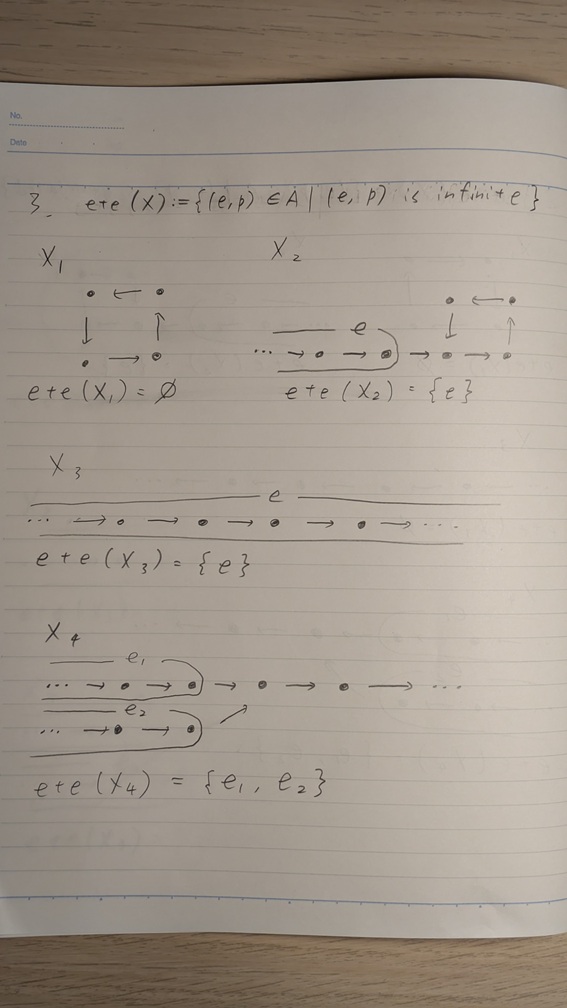 No.
Date
3. ete (X) := {(e, p) ∈ A | (e, p) is infinite}
X₁ X₂
e
ete (X₁) = ∅ ete (X₂) = {e}
X₃
e
ete (X₃) = {e}
X₄
e₁
e₂
ete (X₄) = {e₁, e₂}